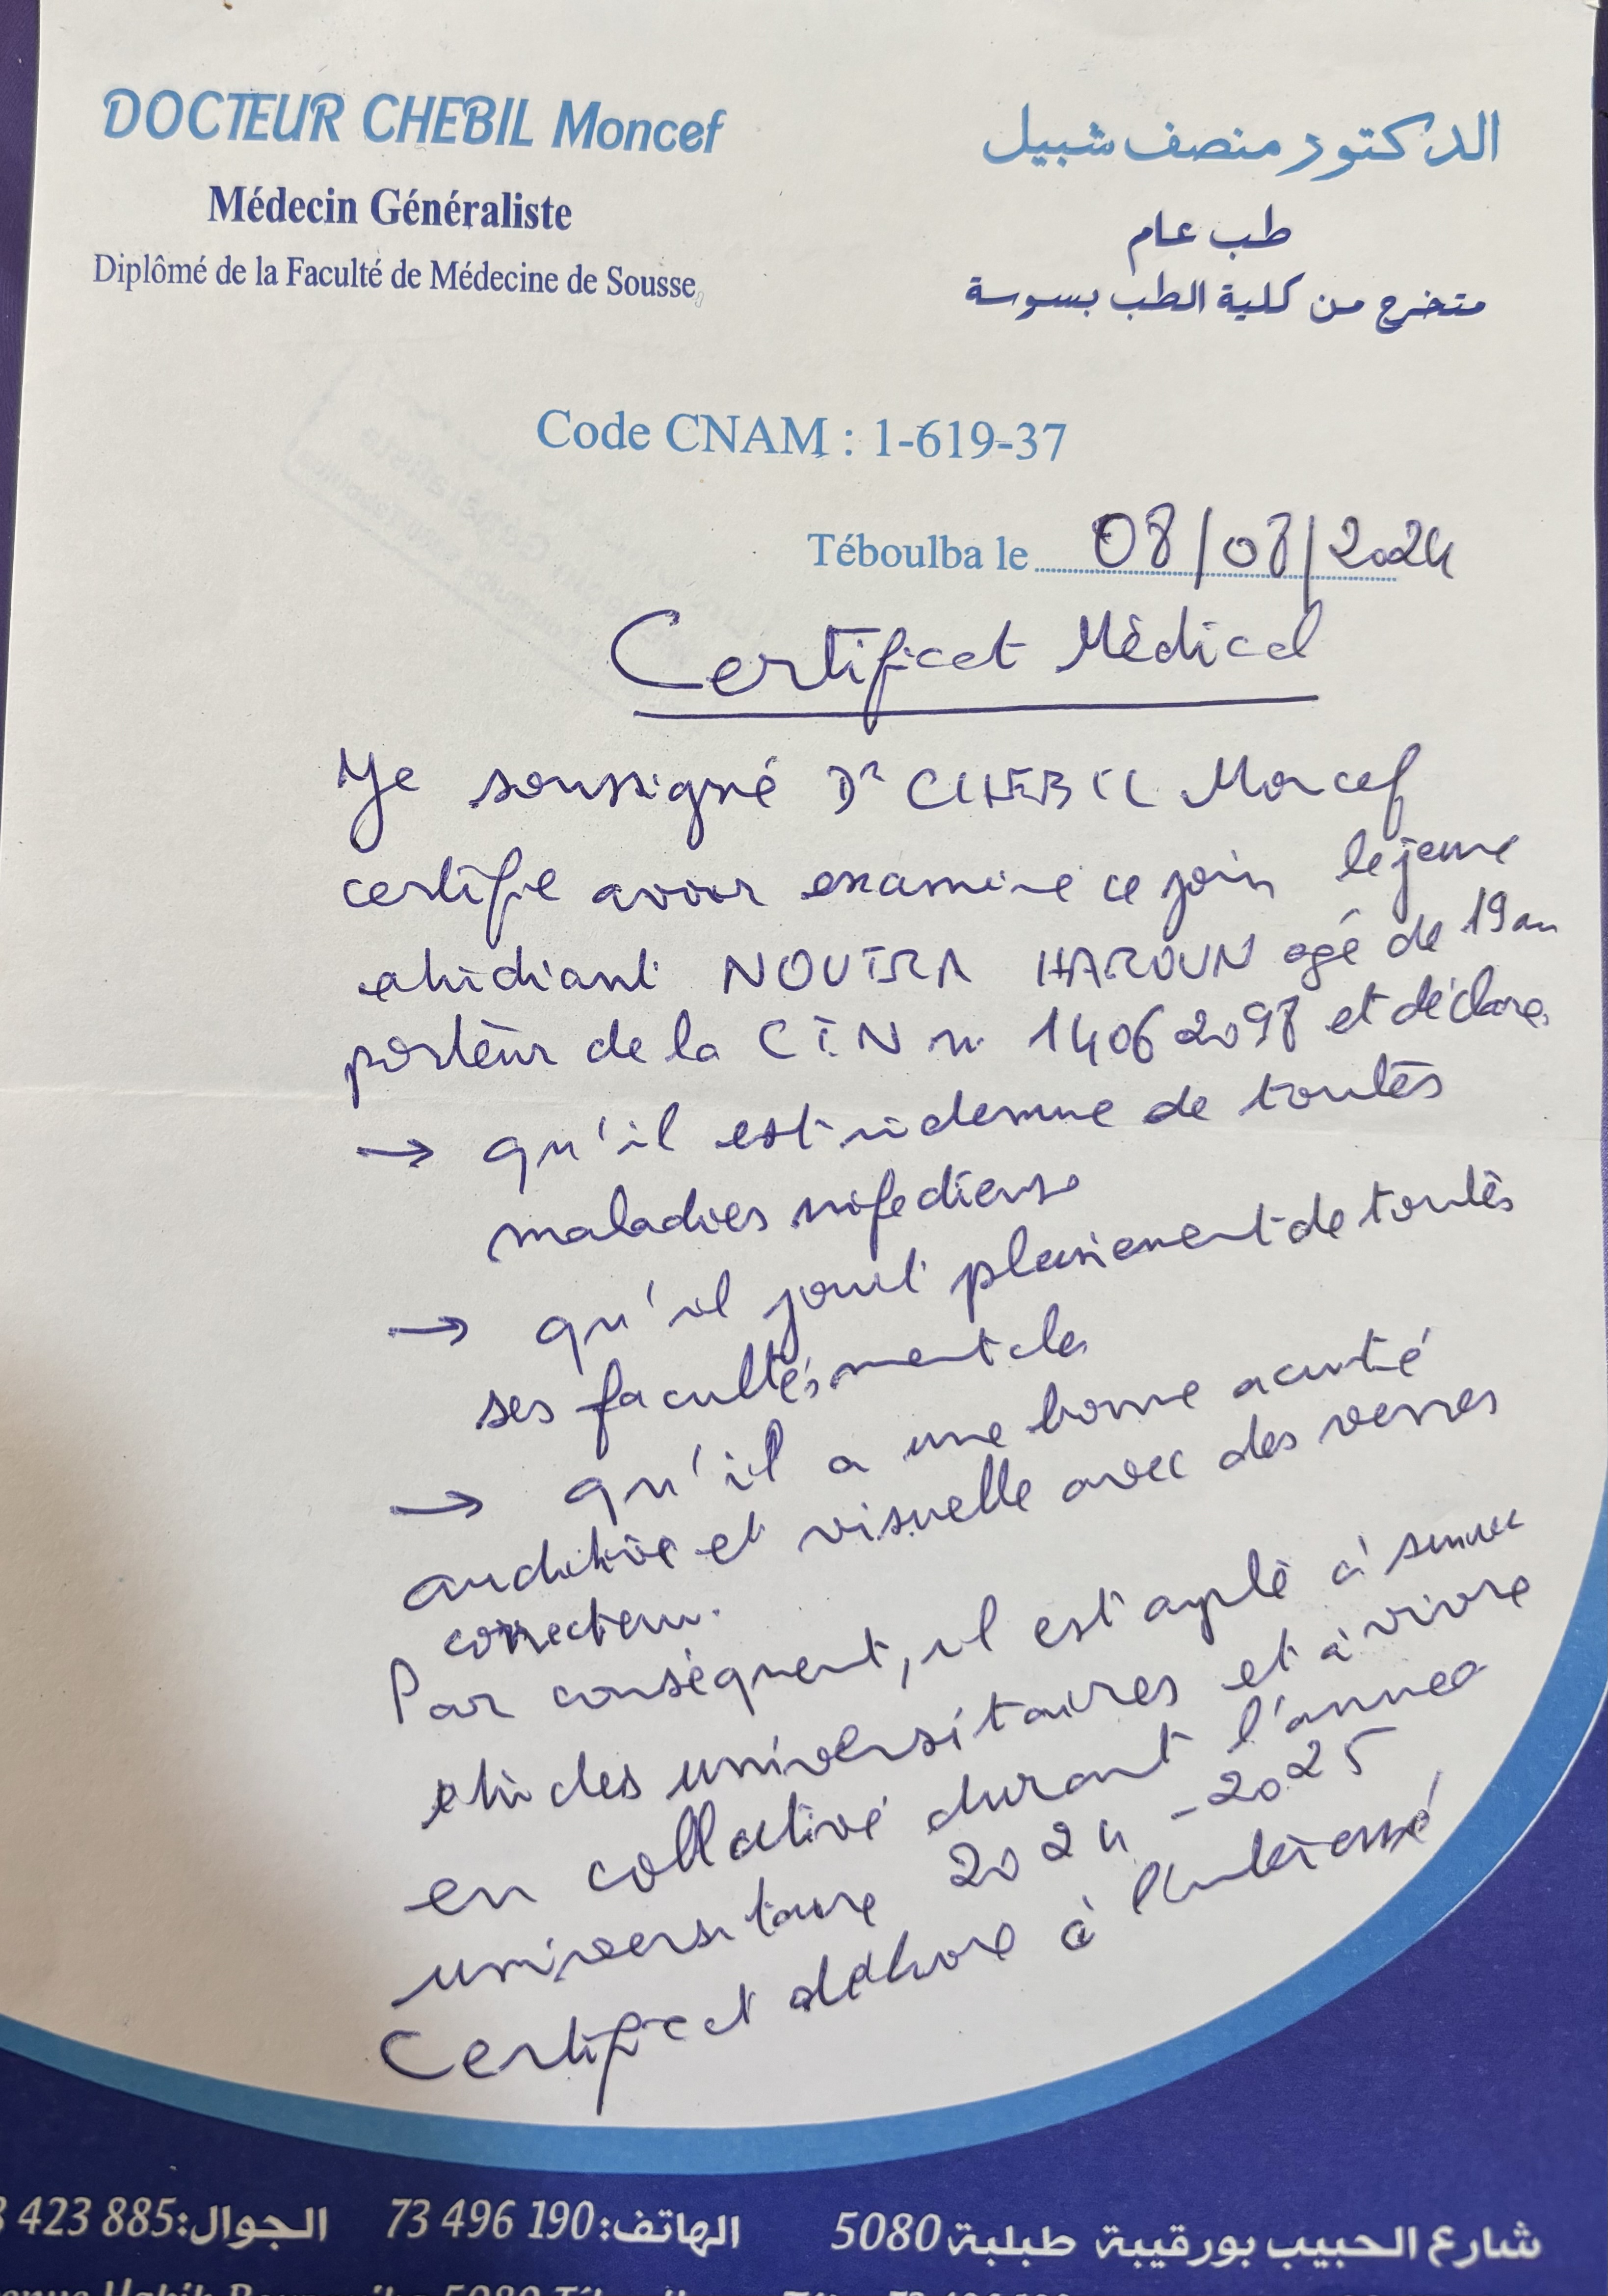 DOCTEUR CHEBIL Moncef
Médecin Généraliste
Diplômé de la Faculté de Médecine de Sousse
الدكتور منصف شبيل
طب عام
متخرج من كلية الطب بسوسة
Code CNAM : 1-619-37
Téboulba le 08/08/2024
Certificat Médical
Je soussigné Dr CHEBIL Moncef
certifie avoir examiné ce jour le jeune
etudiant NOUIRA HAROUN agé de 19 ans
porteur de la CIN n° 14062098 et déclare
→ qu'il est indemne de toutes
maladies infectieuse
→ qu'il jouit pleinement de toutes
ses facultés mentales
→ qu'il a une bonne acuité
auditive et visuelle avec des verres
correcteurs.
Par conséquent, il est apte à suivre
etudes universitaires et à vivre
en collectivité durant l'année
universitaire 2024-2025
Certificat délivré à l'intéressé
423 885:الجوال 73 496 190:الهاتف شارع الحبيب بورقيبة طبلبة 5080